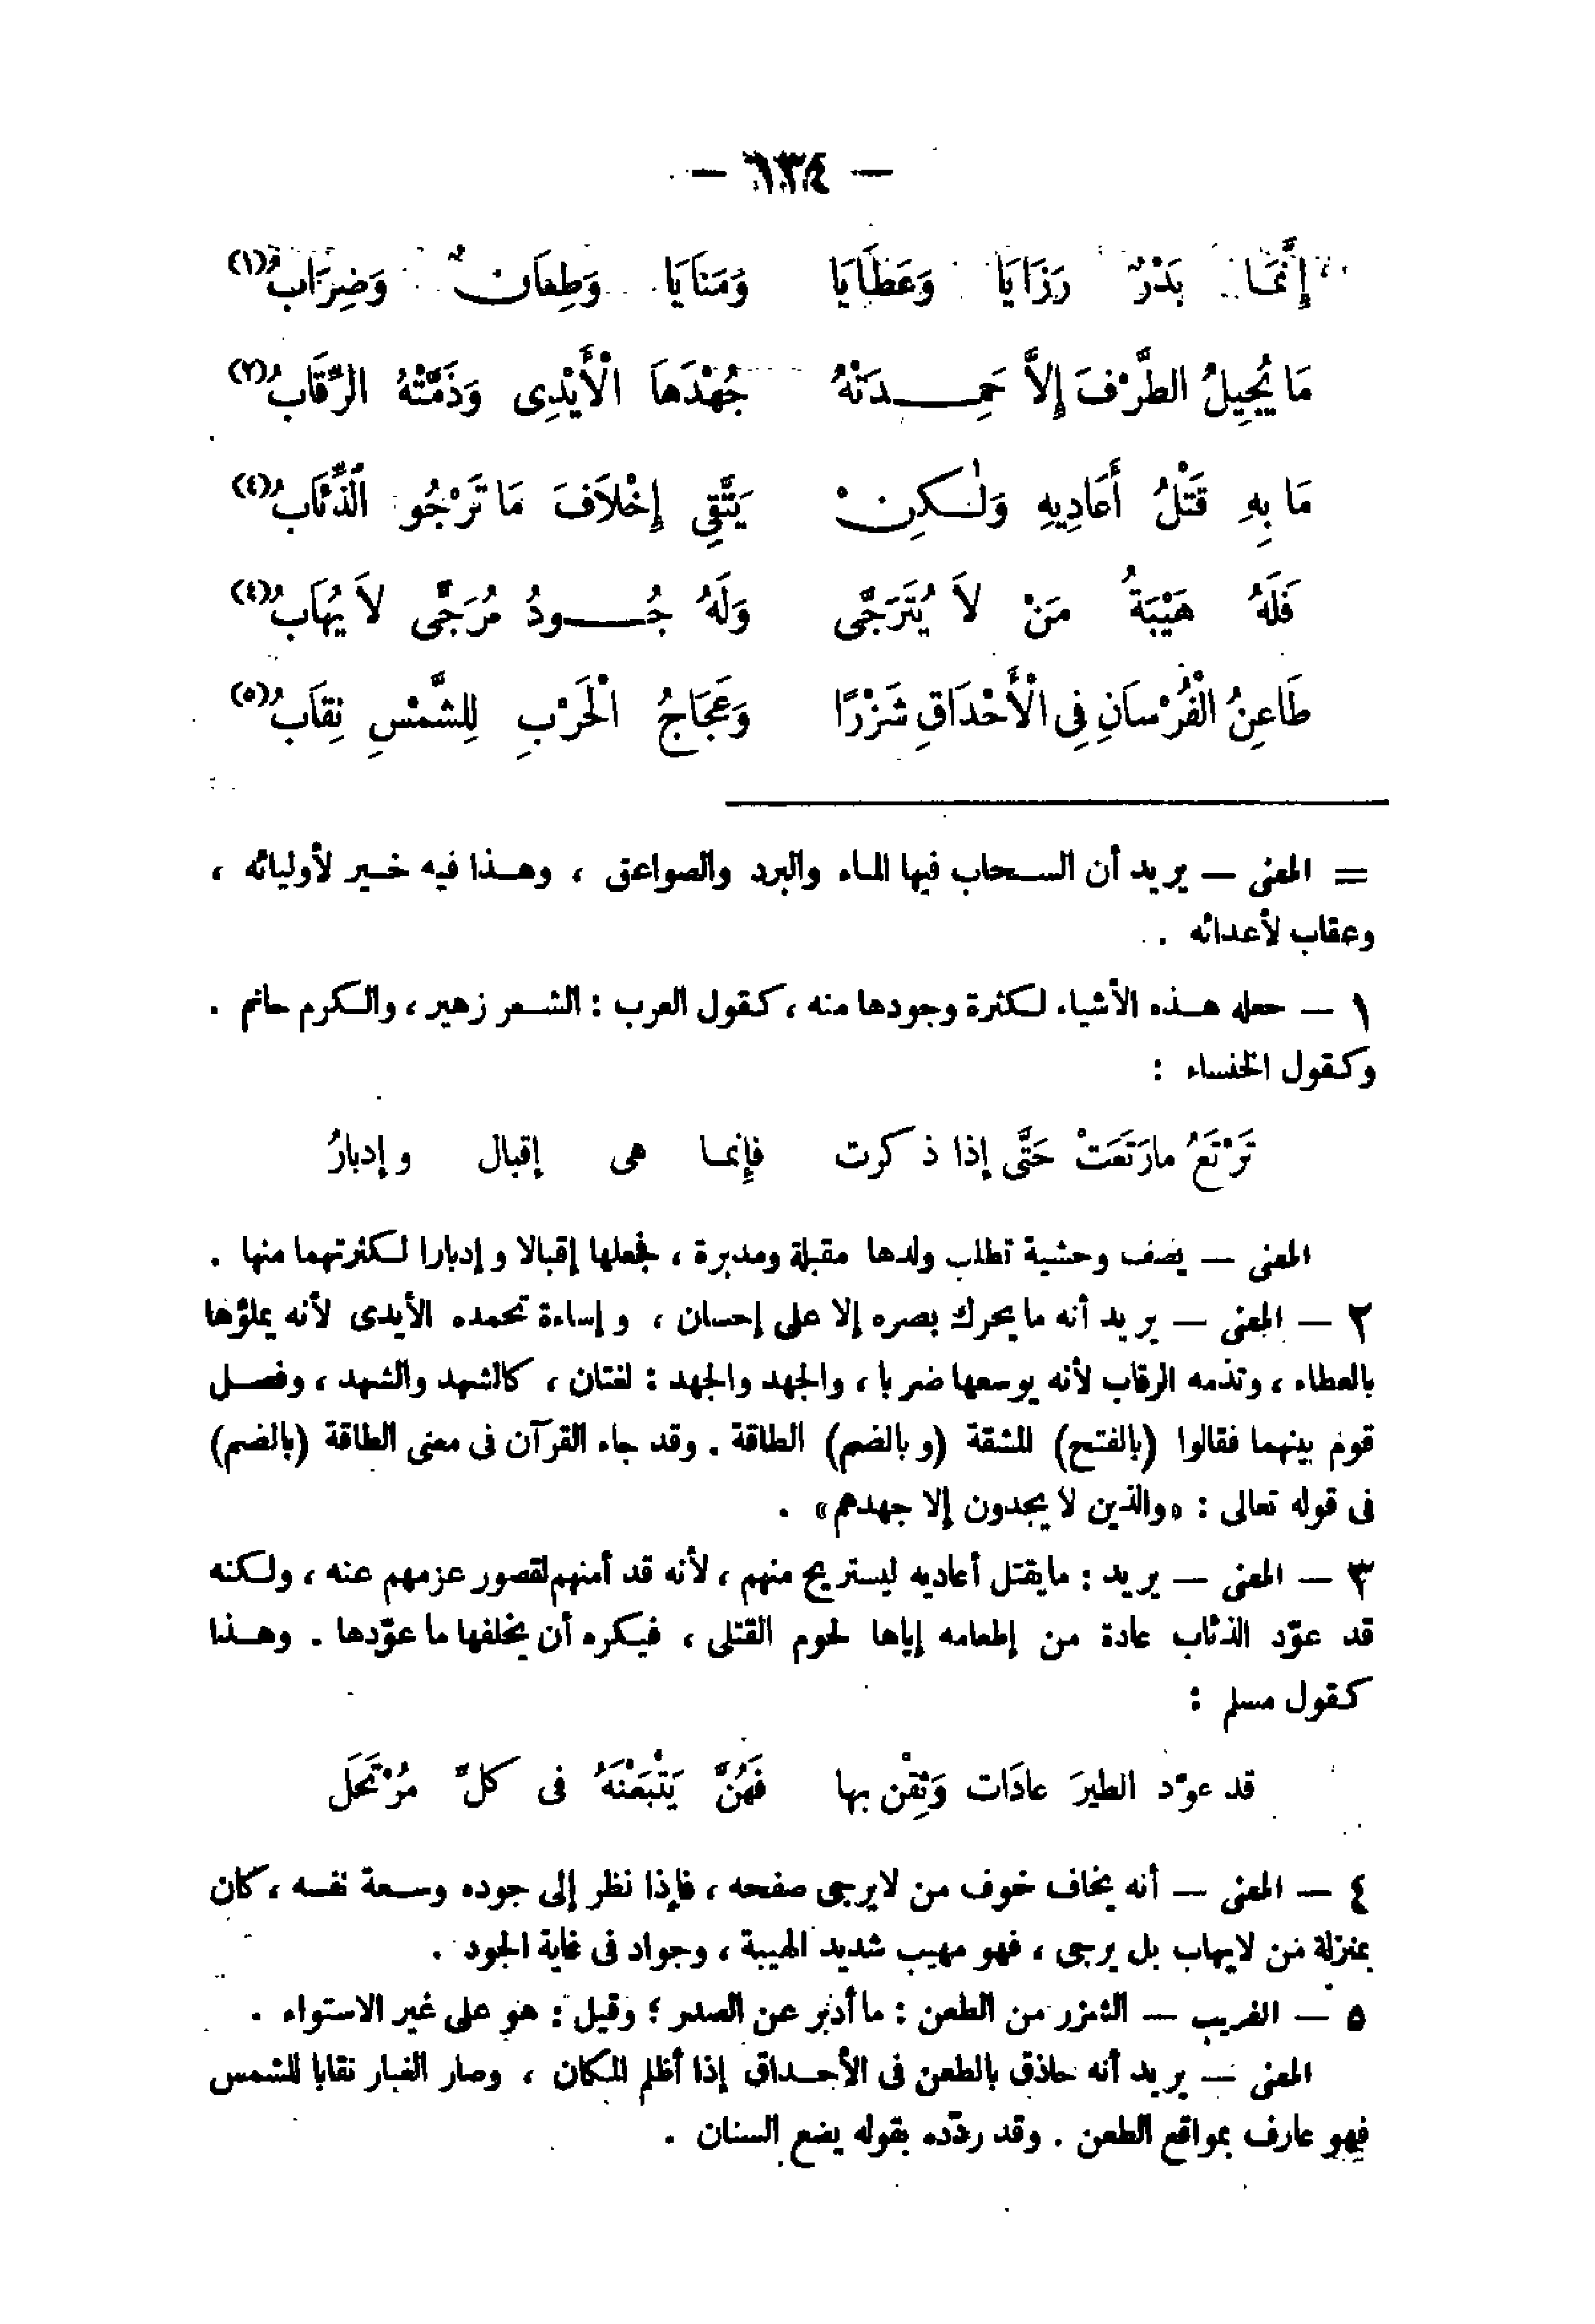 — ٦٣٤ —
إِنَّمَا بَدْرٌ رَزَايَا وَعَطَايَا وَمَنَايَا وَطِعَانٌ وَضِرَابُ(١)
مَا يُجِيلُ الطَّرْفَ إِلاَّ حَمِدَتْهُ جُهْدَهَا الْأَيْدِى وَذَمَّتْهُ الرِّقَابُ(٢)
مَا بِهِ قَتْلُ أَعَادِيهِ وَلٰكِنْ يَتَّقِى إِخْلاَفَ مَا تَرْجُو الذِّئَابُ(٤)
فَلَهُ هَيْبَةُ مَنْ لاَ يُتَرَجَّى وَلَهُ جُودُ مُرَجًّى لاَ يُهَابُ(٤)
طَاعِنُ الْفُرْسَانِ فِى الْأَحْدَاقِ شَزْرًا وَعَجَاجُ الْحَرْبِ لِلشَّمْسِ نِقَابُ(٥)
= المعنى — يريد أن السحاب فيها الماء والبرد والصواعق ، وهذا فيه خير لأوليائه ،
وعقاب لأعدائه .
١ — جعله هذه الأشياء لكثرة وجودها منه ، كقول العرب : الشعر زهير ، والكرم حاتم .
وكقول الخنساء :
تَرْتَعُ مارَتَعَتْ حَتَّى إذا ذكرت فإنما هى إقبال وإدبارُ
المعنى — يصف وحشية تطلب ولدها مقبلة ومدبرة ، فجعلها إقبالا وإدبارا لكثرتهما منها .
٢ — المعنى — يريد أنه ما يحرك بصره إلا على إحسان ، وإساءة تحمده الأيدى لأنه يملؤها
بالعطاء ، وتذمه الرقاب لأنه يوسعها ضربا ، والجهد والجهد : لغتان ، كالشهد والشهد ، وفصل
قوم بينهما فقالوا (بالفتح) المشقة (وبالضم) الطاقة . وقد جاء القرآن فى معنى الطاقة (بالضم)
فى قوله تعالى : «والذين لا يجدون إلا جهدهم» .
٣ — المعنى — يريد : ما يقتل أعاديه ليستريح منهم ، لأنه قد أمنهم لقصور عزمهم عنه ، ولكنه
قد عوّد الذئاب عادة من إطعامه إياها لحوم القتلى ، فيكره أن يخلفها ما عوّدها . وهذا
كقول مسلم :
قد عوّد الطيرَ عادَات وَثِقْن بها فَهُنَّ يَتْبَعْنَهُ فى كلّ مُرْتَحَلِ
٤ — المعنى — أنه يخاف خوف من لا يرجى صفحه ، فإذا نظر إلى جوده وسعة نفسه ، كان
بمنزلة من لا يهاب بل يرجى ، فهو مهيب شديد الهيبة ، وجواد فى غاية الجود .
٥ — الغريب — الشزر من الطعن : ما أدبر عن الصدر ؛ وقيل : هو على غير الاستواء .
المعنى — يريد أنه حاذق بالطعن فى الأحداق إذا أظلم المكان ، وصار الغبار نقابا للشمس
فهو عارف بمواقع الطعن . وقد ردّده بقوله يضع السنان .